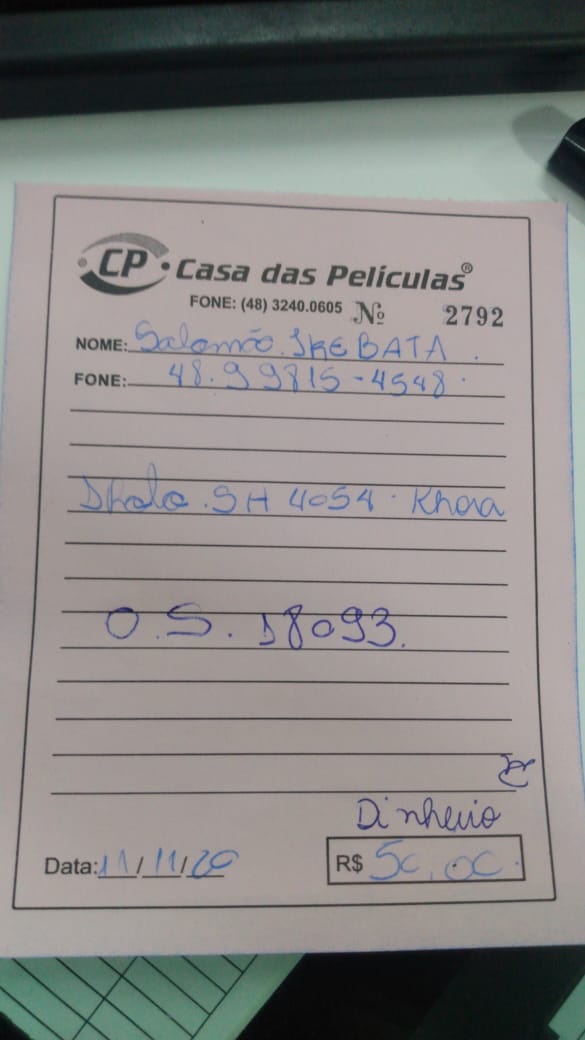 CP Casa das Películas®
FONE: (48) 3240.0605 Nº 2792
NOME: Salomão. IKEBATA.
FONE: 48.99815-4548.
SH 4054.
O.S. 18093.
Dinheiro
Data: 11/11/20 R$ 50,00.